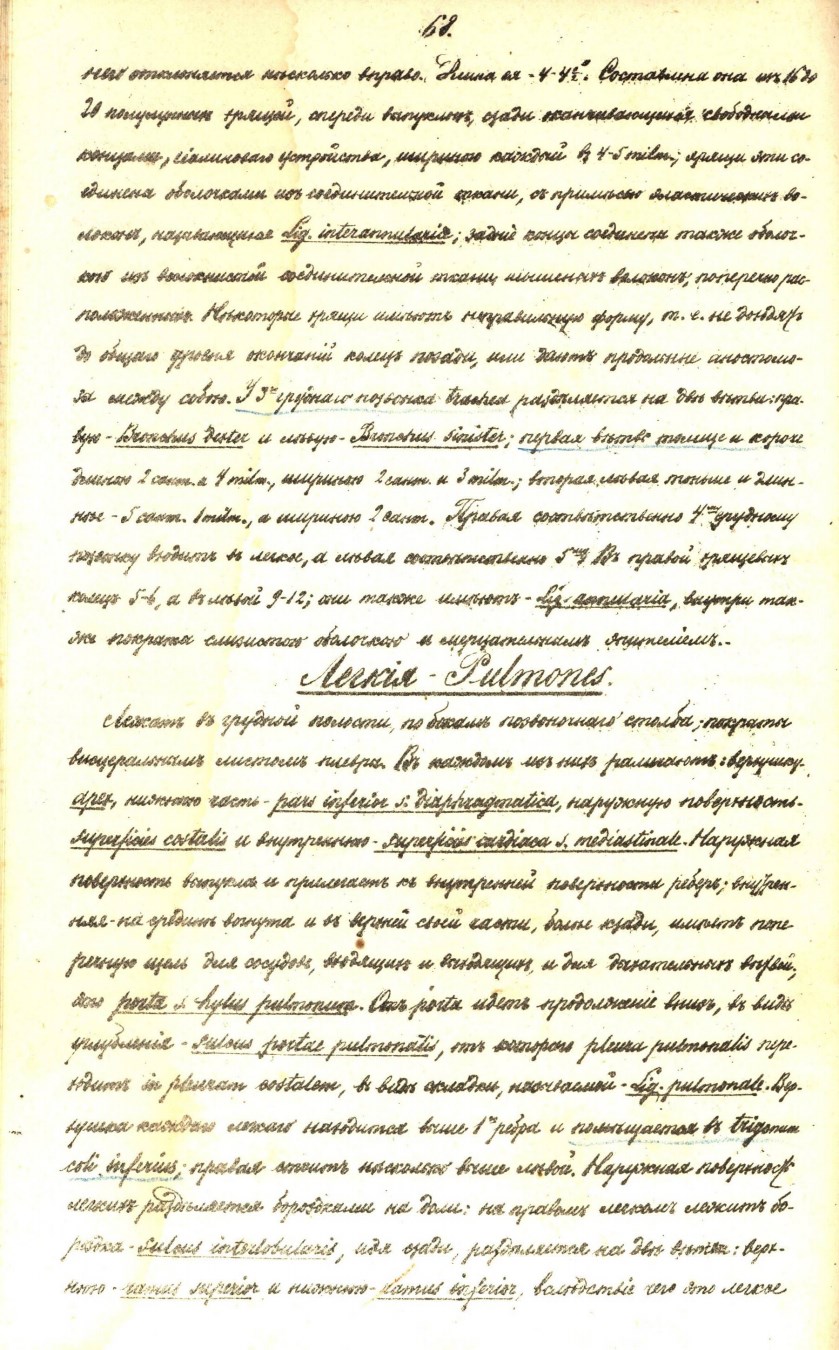 68.
него отклоняется нѣсколько вправо. Длина ея - 4-4½". Составлена она изъ 16 до
20 полулунныхъ хрящей, спереди выпуклыхъ, сзади оканчивающихся свободными
концами, гіалиноваго устройства, шириною каждый въ 4-5 milm.; хрящи эти со-
единены оболочками изъ соединительной ткани, съ примѣсью эластическихъ во-
локонъ, называющіяся Lig. interannularia; задніе концы соединены также оболоч-
кою изъ волокнистой соединительной ткани, мышечныхъ волоконъ, поперечно рас-
положенныхъ. Нѣкоторые хрящи имѣютъ неправильную форму, т. е. не доходятъ
до общаго уровня окончаній колецъ позади, или даютъ продольные аностомо-
зы между собою. У 3го грудного позвонка trachea раздѣляется на двѣ вѣтви: пра-
вую - Bronchus dexter и лѣвую - Bronchus sinister; первая вѣтвь толще и короче
длиною 2 сант. и 4 milm., шириною 2 сант. и 3 milm.; вторая лѣвая тоньше и длин-
нѣе - 5 сант. 1 milm., а шириною 2 сант. Правая соотвѣтственно 4му грудному
позвонку входитъ въ легкое, а лѣвая соотвѣтственно 5му. Въ правой хрящевыхъ
колецъ 5-6, а въ лѣвой 9-12; они также имѣютъ - Lig. annularia, внутри так-
же покрыта слизистою оболочкою и мерцательнымъ эпителіемъ.-
Легкія - Pulmones.
Лежатъ въ грудной полости, по бокамъ позвоночнаго столба; покрыты
висцеральнымъ листомъ плевры. Въ каждомъ изъ нихъ различаютъ: верхушку-
apex, нижнюю часть - pars inferior s. diaphragmatica, наружную поверхность-
superficies costalis и внутреннюю - superficies cardiaca s. mediastinale. Наружная
поверхность выпукла и прилегаетъ къ внутренней поверхности реберъ; внутрен-
няя - на срединѣ вогнута и въ верхней своей части, болѣе кзади, имѣетъ попе-
речную щель для сосудовъ, входящихъ и выходящихъ, и для дыхательныхъ вѣтвей,
это porta s. hylus pulmonum. Отъ porta идетъ продолженіе внизъ, въ видѣ
углубленія - sulcus portae pulmonalis, отъ котораго pleura pulmonalis пере-
ходитъ in pleuram costalem, въ видѣ складки, называемой - Lig. pulmonale. Вер-
хушка каждаго легкаго находится выше 1го ребра и помѣщается въ trigonum
coli inferius; правая стоитъ нѣсколько выше лѣвой. Наружная поверхность
легкихъ раздѣляется бороздками на доли: на правомъ легкомъ лежитъ бо-
роздка - sulcus interlobularis, идя сзади, раздѣляется на двѣ вѣтви: верх-
нюю - ramus superior и нижнюю - ramus inferior, вслѣдствіе чего это легкое